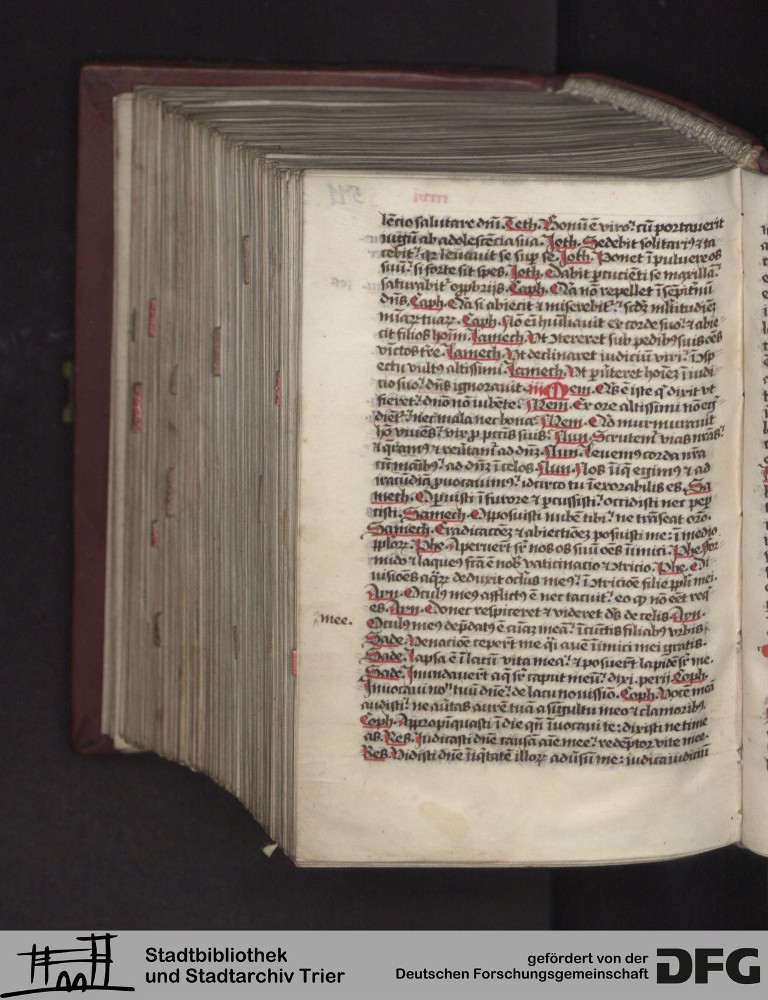 lēcio salutare dm̄i. Teth. Bonū ē viro: cū portauerit
iugū ab adolescēcia sua. Joth. Sedebit solitariꝰ ⁊ ta
cebit: qꝛ leuauit se suꝑ se. Joth. Ponet ī puluere os
suū: si forte sit spes. Joth. Dabit ꝑcuciēti se maxillā
saturabit᷑ opprobrijs. Caph. Q̄a nō repellet ī sēpit̄nū
dn̄s. Caph. Q̄a si abiecit ⁊ miserebit᷑: scd̄z mltitudiez
mīaꝝ tuaꝝ. Caph. Nō em̄ hūiliauit ex corde suo: ⁊ abie
cit filios hoīm. Lamech. Vt ↄtereret sub pedibꝰ suis oēs
vīctos tre. Lamech. Vt declinaret iudiciū viri: ī ↄsp
ectu vultꝰ altissimi. Lamech. Vt ꝑuerteret hoīez ī iudi
cio suo: dn̄s ignorauit. Mem. Q̄s ē iste q̇ dixit vt
fieret: dn̄o nō iubēte. Mem. Ex ore altissimi nō eg
diēt᷑: nec mala nec bona. Mem. Q̇d murmurauit
hō viuēs: vir ꝓ pctīs suis. Nun. Scrutem᷑ vias nr̄as
⁊ q̄ram᷑ ⁊ reūtam᷑ ad dn̄z. Nun. Leuemꝰ corda nr̄a
cū māibꝰ: ad dn̄z ī celos. Nun. Nos īiq̄ egimꝰ ⁊ ad
iracūdiā ꝓuocauimꝰ: idcirco tu īexorabilis es. Sa
mech. Opuisti ī furore ⁊ ꝑcussisti: occidisti nec peꝑ
cisti. Samech. Opposuisti nubē tibi: ne trāseat oro.
Samech. Eradicatōez ⁊ abiectōez posuisti me: ī medio
ppl'oꝝ. Phe. Aperuerūt sr̄ nos os suū oēs īimici. Phe. For
mido ⁊ laqueꝰ scā ē nob' vaticinacio ⁊ ↄtricio. Phe. Di
uisiōes aq̄ꝝ deduxit oclus meꝰ: ī ↄtricōe filie ppl'i mei.
Ayn. Oculꝰ meꝰ afflictꝰ ē nec tacuit: eo q̇ nō eēt req̇
es. Ayn. Donec respiceret ⁊ videret dn̄s de celis. Ayn.
mee.
Oculꝰ meꝰ dep̄datꝰ ē aīaz meā: ī cūctis filiabꝰ vrbis.
Sade. Venatiōe ceperūt me q̄si auē īimici mei gratis.
Sade. Lapsa ē ī lacū vita mea: ⁊ posuerūt lapidē sr̄ me.
Sade. Inundauerūt aq̄ sr̄ caput meū: dixi perij. Coph.
Inuocaui nō tuū dn̄e: de lacu nouissīo. Coph. Vocē meā
audisti: ne aūtas aurē tuā a sūgultu meo ⁊ clamoribꝰ.
Coph. Appropīquasti ī die qn̄ īuocaui te: dixisti ne time
as. Res. Judicasti dn̄e causā aīe mee: redēptor vite mee.
Res. Vidisti dn̄e īiq̄tatē illoꝝ aduīsū me: iudica iudiciū
Stadtbibliothek
und Stadtarchiv Trier
gefördert von der
Deutschen Forschungsgemeinschaft
DFG